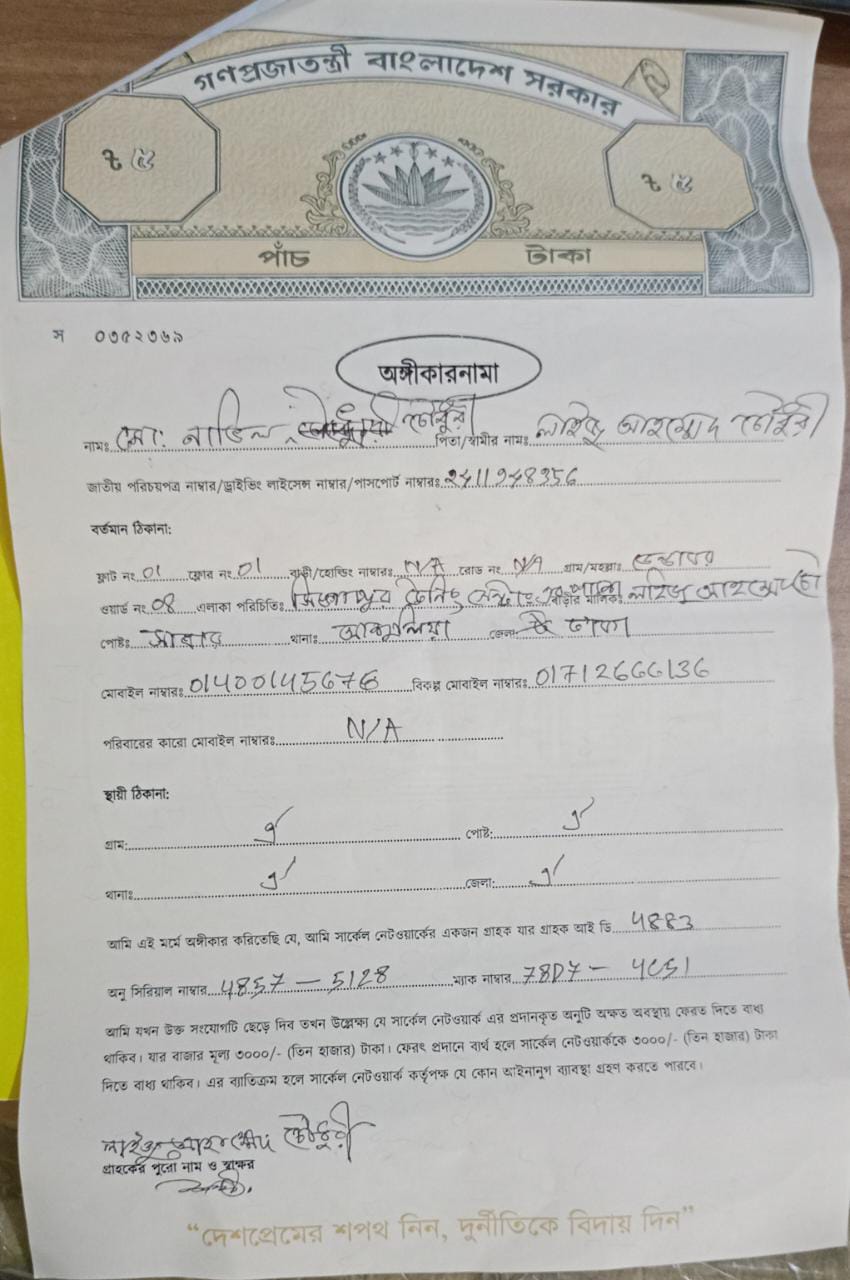 গণপ্রজাতন্ত্রী বাংলাদেশ সরকার
৳ ৫ ৳ ৫
পাঁচ টাকা
স ০৩৫২৩৬৯
অঙ্গীকারনামা
নামঃ মো: নাভিল চৌধুরী পিতা/স্বামীর নামঃ লাইজু আহম্মেদ চৌধুরী
জাতীয় পরিচয়পত্র নাম্বার/ড্রাইভিং লাইসেন্স নাম্বার/পাসপোর্ট নাম্বারঃ
বর্তমান ঠিকানা:
ফ্লাট নং 01 ফ্লোর নং 01 বাড়ী/হোল্ডিং নাম্বারঃ N/A রোড নং N/A গ্রাম/মহল্লাঃ
ওয়ার্ড নং 08 এলাকা পরিচিতিঃ বাড়ীর মালিকঃ লাইজু আহম্মেদ চৌ
পোষ্টঃ সাভার থানাঃ আশুলিয়া জেলাঃ ঢাকা
মোবাইল নাম্বারঃ 01400145676 বিকল্প মোবাইল নাম্বারঃ 01712666136
পরিবারের কারো মোবাইল নাম্বারঃ N/A
স্থায়ী ঠিকানা:
গ্রাম: পোষ্ট:
থানাঃ জেলা:
আমি এই মর্মে অঙ্গীকার করিতেছি যে, আমি সার্কেল নেটওয়ার্কের একজন গ্রাহক যার গ্রাহক আই ডি 4883
অনু সিরিয়াল নাম্বার 4857 - 5128 ম্যাক নাম্বার 78D7 - 4C51
আমি যখন উক্ত সংযোগটি ছেড়ে দিব তখন উল্লেক্ষ্য যে সার্কেল নেটওয়ার্ক এর প্রদানকৃত অনুটি অক্ষত অবস্থায় ফেরত দিতে বাধ্য
থাকিব। যার বাজার মূল্য ৩০০০/- (তিন হাজার) টাকা। ফেরৎ প্রদানে ব্যর্থ হলে সার্কেল নেটওয়ার্ককে ৩০০০/- (তিন হাজার) টাকা
দিতে বাধ্য থাকিব। এর ব্যাতিক্রম হলে সার্কেল নেটওয়ার্ক কর্তৃপক্ষ যে কোন আইনানুগ ব্যাবস্থা গ্রহণ করতে পারবে।
লাইজু আহম্মেদ চৌধুরী
গ্রাহকের পুরো নাম ও স্বাক্ষর
“দেশপ্রেমের শপথ নিন, দুর্নীতিকে বিদায় দিন”